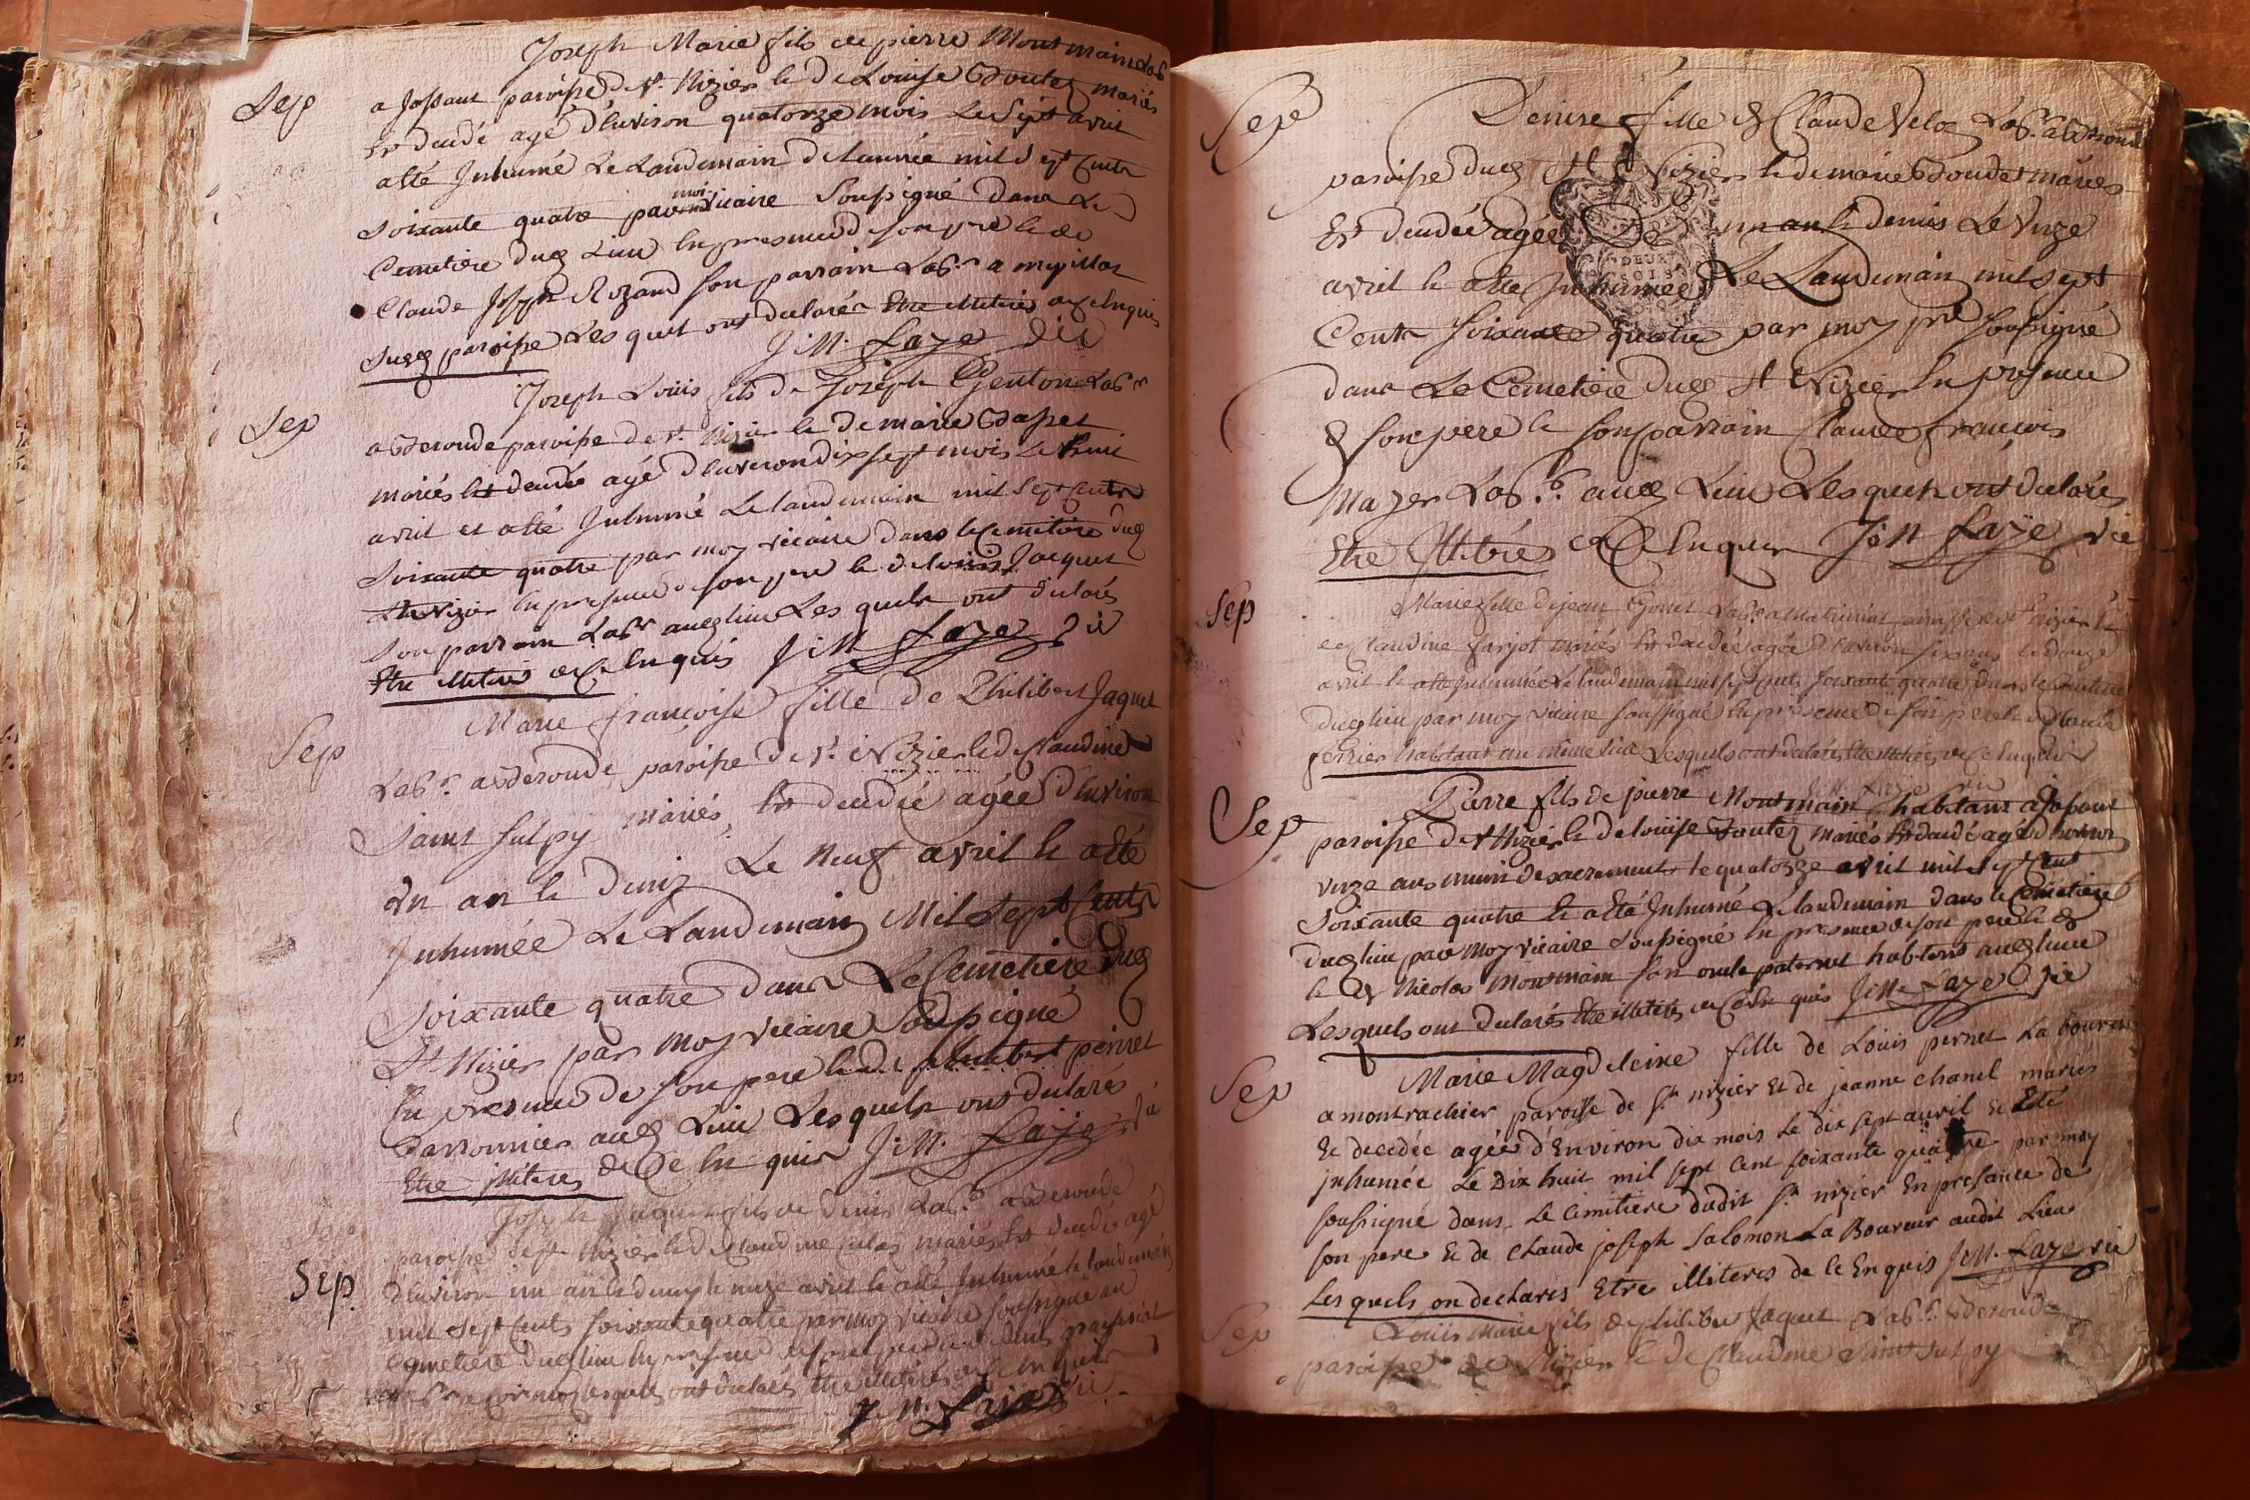 Joseph Marie fils de pierre Montmain Labr
Sep
a Jossant paroisse de St. Nizier Et de Louise Goutez mariés
Est decédé agé d'Environ quatorze mois Le Sept avril
a Eté Inhumé Le Landemain de l'année mil Sept Cents
soixante quatre par moi vicaire Soussigné dans Le
Cemetiere dud Lieu En presence de son pere Et de
Claude Joseph Rozand son parrain Labr a
Susd paroisse Lesquels ont declarés Etre illiterés de ce Enquis
J: M. Laye vic
Sep
Joseph Louis fils de Joseph Genton Labr
a Bderonde paroisse de St. Nizier Et De marie
mariés Est decedé agé d'Environ dix sept mois Le huit
avril et a Eté Inhumé Le landemain mil Sept Cents
Soixante quatre par moy vicaire dans le Cemetiere dud
St Nizier En presence de son pere Et de Louis Jacquet
son parrain Labr aud lieu Lesquels ont declarés
Etre illiterés de Ce Enquis J: M Laye vic
Sep
Marie françoise fille de Philibert Jaquet
Labr. a Bderonde paroisse de St. Nizier Et de Claudine
Saint Sulpy mariés, Est decedée agée d'Environ
un an Et demiz Le Neuf avril Et a Eté
Inhumée Le Landemain Mil Sept Cents
Soixante quatre dans Le Cemetiere dud
St Nizier par moy vicaire Soussigné
En presence de son pere Et de philibert perret
parronnier aud Lieu Lesquels ont declarés
Etre illiteres de Ce Enquis J: M. Laye vic
Joseph Jaquet fils de Denis Labr. a Bderonde
Sep.
paroisse de St Nizier Et de Claudine mariés Est decedé agé
d'Environ un an Et demy le onze avril Et a Eté Inhumé le landemain
mil Sept Cents soixante quatre par moy vicaire Soussigné au
Cemetiere dud lieu En presence de son pere
lesquels ont declarés Etre illiterés de Ce Enquis
J. M. Laye vic
Sep
Denise fille de Claude Velon Labr. a Bderonde
paroisse dud St Nizier Et de marie Goudet mariés
Est decedée agée De un an Et demis Le Unze
DEUX
SOLS
avril Et a Eté Inhumée Le Landemain mil Sept
Cents soixante quatre par moy pre soussigné
dans Le Cemetiere dud St Nizier En presence
de son pere Et son parrain Claude françois
Mazer Labr. aud Lieu Lesquels ont declarés
Etre Illiterés de Ce Enquis J: M Laye vic
Sep
Marie fille de jean Labr a paroisse de St Nizier Et
de Claudine farjot mariés Est decedée agée d'Environ six ans Le douze
avril Et a Eté Inhumée Le landemain mil sept Cents soixante quatre dans le Cemetiere
dud lieu par moy vicaire soussigné En presence de son pere Et de Claude
perrier habitant au même lieu Lesquels ont declarés Etre illiterés de Ce Enquis
J: M. Laye vic
Sep
Pierre fils de pierre Montmain habitant a Jossant
paroisse de St Nizier Et de Louise Goutez mariés Est decedé agé d'Environ
unze ans muni de sacrements le quatorze avril mil Sept Cent
Soixante quatre Et a Eté Inhumé Le landemain dans le Cemetiere
dud lieu par moy vicaire soussigné En presence de son pere Et de
Et de Nicolas Montmain son oncle paternel habitant aud lieu
Lesquels ont declarés Etre illiterés de Ce En quis J: M. Laye vic
Sep
Marie Magdeleine fille de Louis pernet La boureur
a montrachier paroisse de St. nizier Et de jeanne chanel mariés
Et decedée agée d'Environ dix mois Le dix sept avril Et Eté
inhumée Le Dix huit mil sept Cent soixante quatre par moy
soussigné dans Le cimitiere dudit St. nizier En presance de
son pere Et de claude joseph Salomon La Boureur audit Lieu
Les quels on declarés Etre illiteres de Ce Enquis J: M. Laye vic
Sep
Louis Marie fils de philibert Jaquet Labr. a Bderonde
paroisse de St Nizier Et de Claudine Saint Sulpy